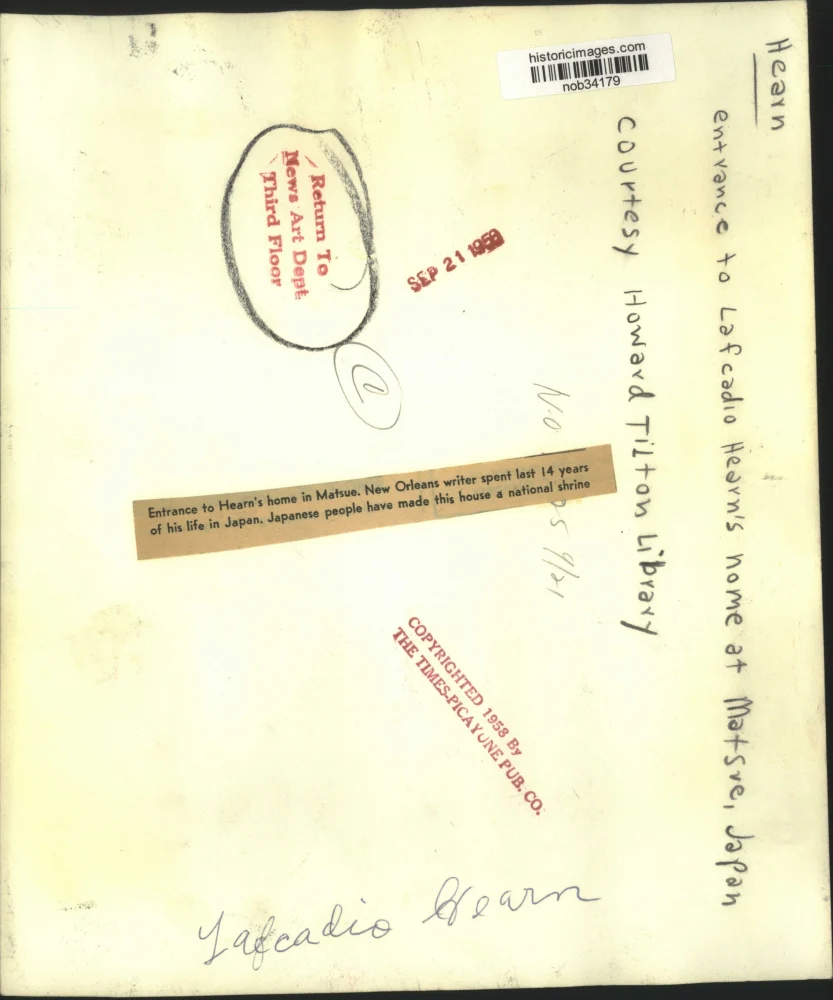 historicimages.com
nob34179
Hearn
entrance to Lafcadio Hearn's home at Matsue, Japan
Courtesy Howard Tilton Library
Return To
News Art Dept
Third Floor
SEP 21 1958
No
9/21
Entrance to Hearn's home in Matsue. New Orleans writer spent last 14 years
of his life in Japan. Japanese people have made this house a national shrine
COPYRIGHTED 1958 By
THE TIMES-PICAYUNE PUB. CO.
Lafcadio Hearn